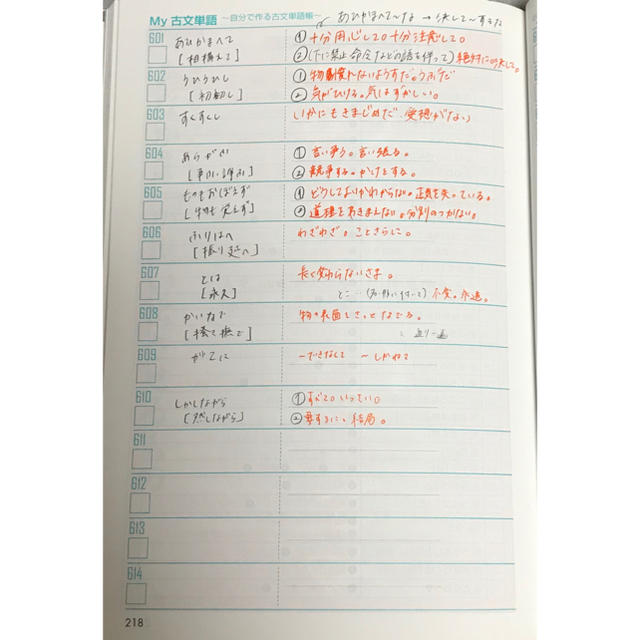 My 古文単語 ～自分で作る古文単語帳～
あひかまへて～な → 決して～するな
601 あひかまへて ① 十分用心して。十分注意して。
[相構えて] ②(下に禁止命令などの語を伴って)絶対に。決して。
602 うひうひし ① 物慣れないようすだ。うぶだ
[初初し] ② 気がひける。気はずかしい。
603 すくすくし いかにもきまじめだ。愛想がない
604 あらがふ ① 言い争う。言い張る。
[争ふ・諍ふ] ② 競争する。かけをする。
605 ものもおぼえず ① どうしてよいかわからない。正気を失っている。
[物も覚えず] ② 道理をわきまえない。分別のつかない。
606 ふりはへ わざわざ。ことさらに。
[振り延へ]
607 とは 長く変わらないさま。
[永久] とこ‥‥(名・外に付いて)不変。永遠。
608 かいなで 物の表面をさっとなでる。
[掻き撫で]
609 がてに ～できなくて ～しかねて
610 しかしながら ① すべて。いっさい。
[然しながら] ② 要するに、結局。
611
612
613
614
218